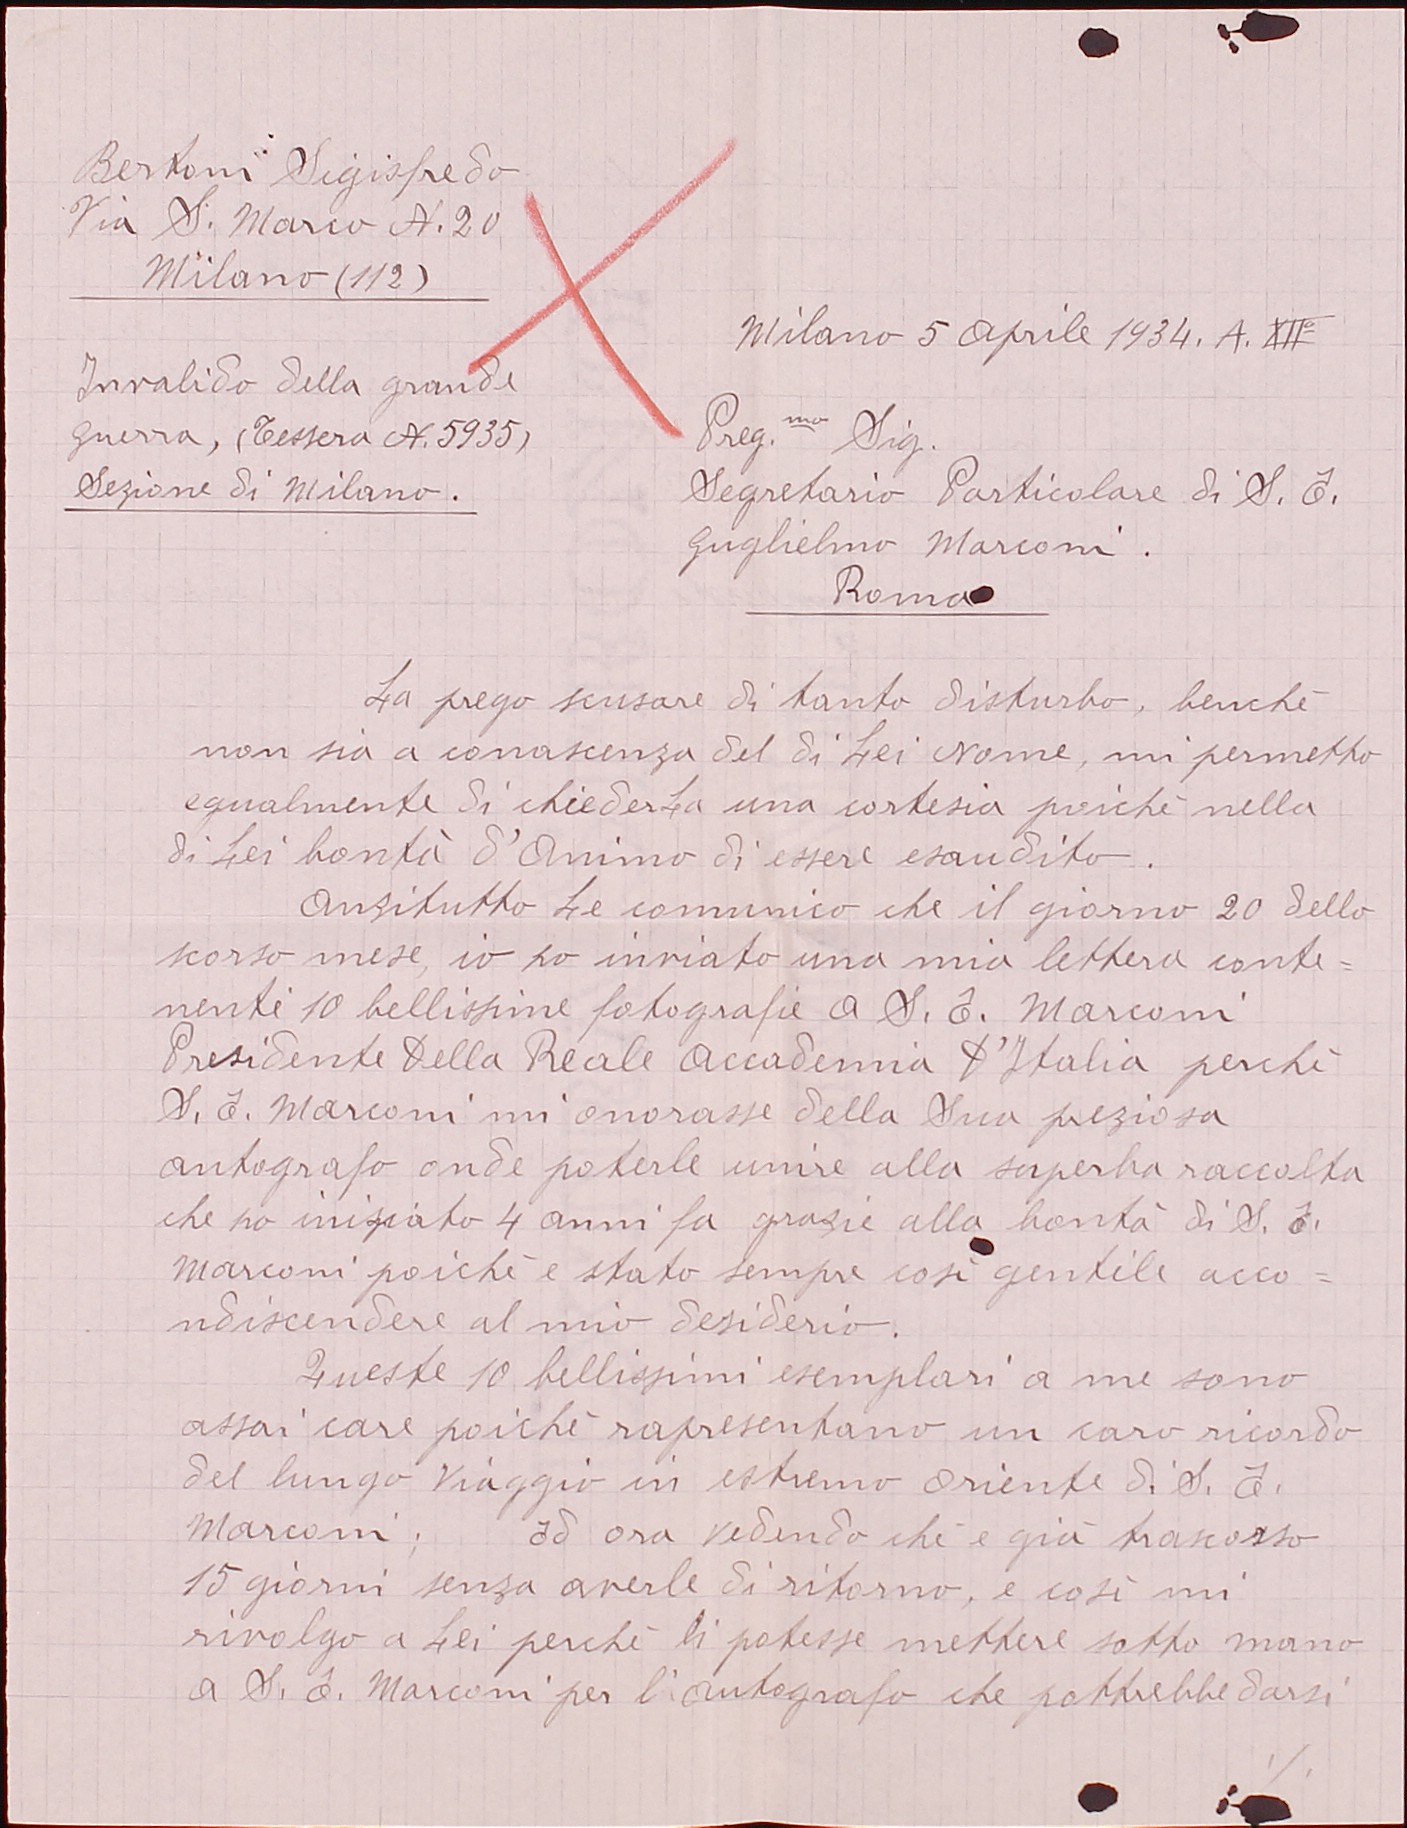 Bertoni Sigisfredo
Via S. Marco N. 20
Milano (112)
Invalido della grande
guerra, (Tessera N. 5935)
Sezione di Milano.
Milano 5 Aprile 1934. A. XIIº
Preg.mo Sig.
Segretario Particolare di S. E.
Guglielmo Marconi.
Roma
La prego scusare di tanto disturbo, benchè
non sia a conascenza del di Lei Nome, mi permetto
egualmente di chiederLa una cortesia poichè nella
di Lei bontà d'Animo di essere esaudito.
Anzitutto Le comunico che il giorno 20 dello
scorso mese, io ho inviato una mia lettera conte=
nenti 10 bellissime fotografie a S. E. Marconi
Presidente Della Reale Accademia D'Italia perchè
S. E. Marconi mi onorasse della Sua preziosa
autografo onde poterle unire alla superba raccolta
che ho iniziato 4 anni fa grazie alla bontà di S. E.
Marconi poichè e stato sempre cosi gentile acco=
ndiscendere al mio desiderio.
Queste 10 bellissimi esemplari a me sono
assai care poichè rapresentano un caro ricordo
del lungo Viaggio in estremo Oriente di S. E.
Marconi; Ed ora vedendo chè e già trascorso
15 giorni senza averle di ritorno, e cosi mi
rivolgo a Lei perchè li potesse mettere sotto mano
a S. E. Marconi per l'autografo che pottrebbe darsi
./.